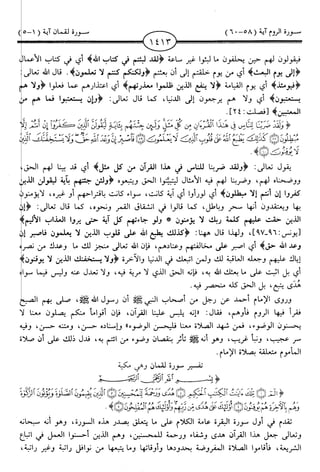 سورة الروم آية (٥٨-٦٠)
١٤١٣
سورة لقمان آية (١-٥)
فيقولون لهم حين يحلفون ما لبثوا غير ساعة ﴿لقد لبثتم في كتاب الله﴾ أي في كتاب الأعمال
﴿إلى يوم البعث﴾ أي من يوم خلقتم إلى أن بعثتم ﴿ولكنكم كنتم لا تعلمون﴾. قال الله تعالى:
﴿فيومئذ﴾ أي يوم القيامة ﴿لا ينفع الذين ظلموا معذرتهم﴾ أي اعتذارهم عما فعلوا ﴿ولا هم
يستعتبون﴾ أي ولا هم يرجعون إلى الدنيا، كما قال تعالى: ﴿وإن يستعتبوا فما هم من
المعتبين﴾ [فصلت: ٢٤].
﴿ولقد ضربنا للناس في هذا القرآن من كل مثل ولئن جئتهم بآية ليقولن الذين كفروا إن أنتم إلا
يقول تعالى: ﴿ولقد ضربنا للناس في هذا القرآن من كل مثل﴾ أي قد بينا لهم الحق،
ووضحناه لهم، وضربنا لهم فيه الأمثال ليتبينوا الحق ويتبعوه، ﴿ولئن جئتهم بآية ليقولن الذين
كفروا إن أنتم إلا مبطلون﴾ أي لو رأوا أي آية كانت، سواء كانت باقتراحهم أو غيره، لا يؤمنون
بها ويعتقدون أنها سحر وباطل، كما قالوا في انشقاق القمر ونحوه، كما قال تعالى: ﴿إن
الذين حقت عليهم كلمة ربك لا يؤمنون * ولو جاءتهم كل آية حتى يروا العذاب الأليم﴾
[يونس: ٩٦-٩٧]، ولهذا قال ههنا: ﴿كذلك يطبع الله على قلوب الذين لا يعلمون فاصبر إن
وعد الله حق﴾ أي اصبر على مخالفتهم وعنادهم، فإن الله تعالى منجز لك ما وعدك من نصره
إياك عليهم وجعله العاقبة لك ولمن اتبعك في الدنيا والآخرة ﴿ولا يستخفنك الذين لا يوقنون﴾
أي بل اثبت على ما بعثك الله به، فإنه الحق الذي لا مرية فيه، ولا تعدل عنه وليس فيما سواه
هُدى يتبع، بل الحق كله منحصر فيه.
وروى الإمام أحمد عن رجل من أصحاب النبي ﷺ أن رسول الله ﷺ، صلى بهم الصبح
فقرأ فيها الروم فأوهم، فقال: «إنه يلبس علينا القرآن، فإن أقواماً منكم يصلون معنا لا
يحسنون الوضوء، فمن شهد الصلاة معنا فليحسن الوضوء» وإسناده حسن، ومتنه حسن، وفيه
سر عجيب، ونبأ غريب، وهو أنه ﷺ تأثر بنقصان وضوء من ائتم به، فدل ذلك على أن صلاة
المأموم متعلقة بصلاة الإمام.
تفسير سورة لقمان وهي مكية
تقدم في أول سورة البقرة عامة الكلام على ما يتعلق بصدر هذه السورة، وهو أنه سبحانه
وتعالى جعل هذا القرآن هدى وشفاء ورحمة للمحسنين، وهم الذين أحسنوا العمل في اتباع
الشريعة، فأقاموا الصلاة المفروضة بحدودها وأوقاتها وما يتبعها من نوافل راتبة وغير راتبة،